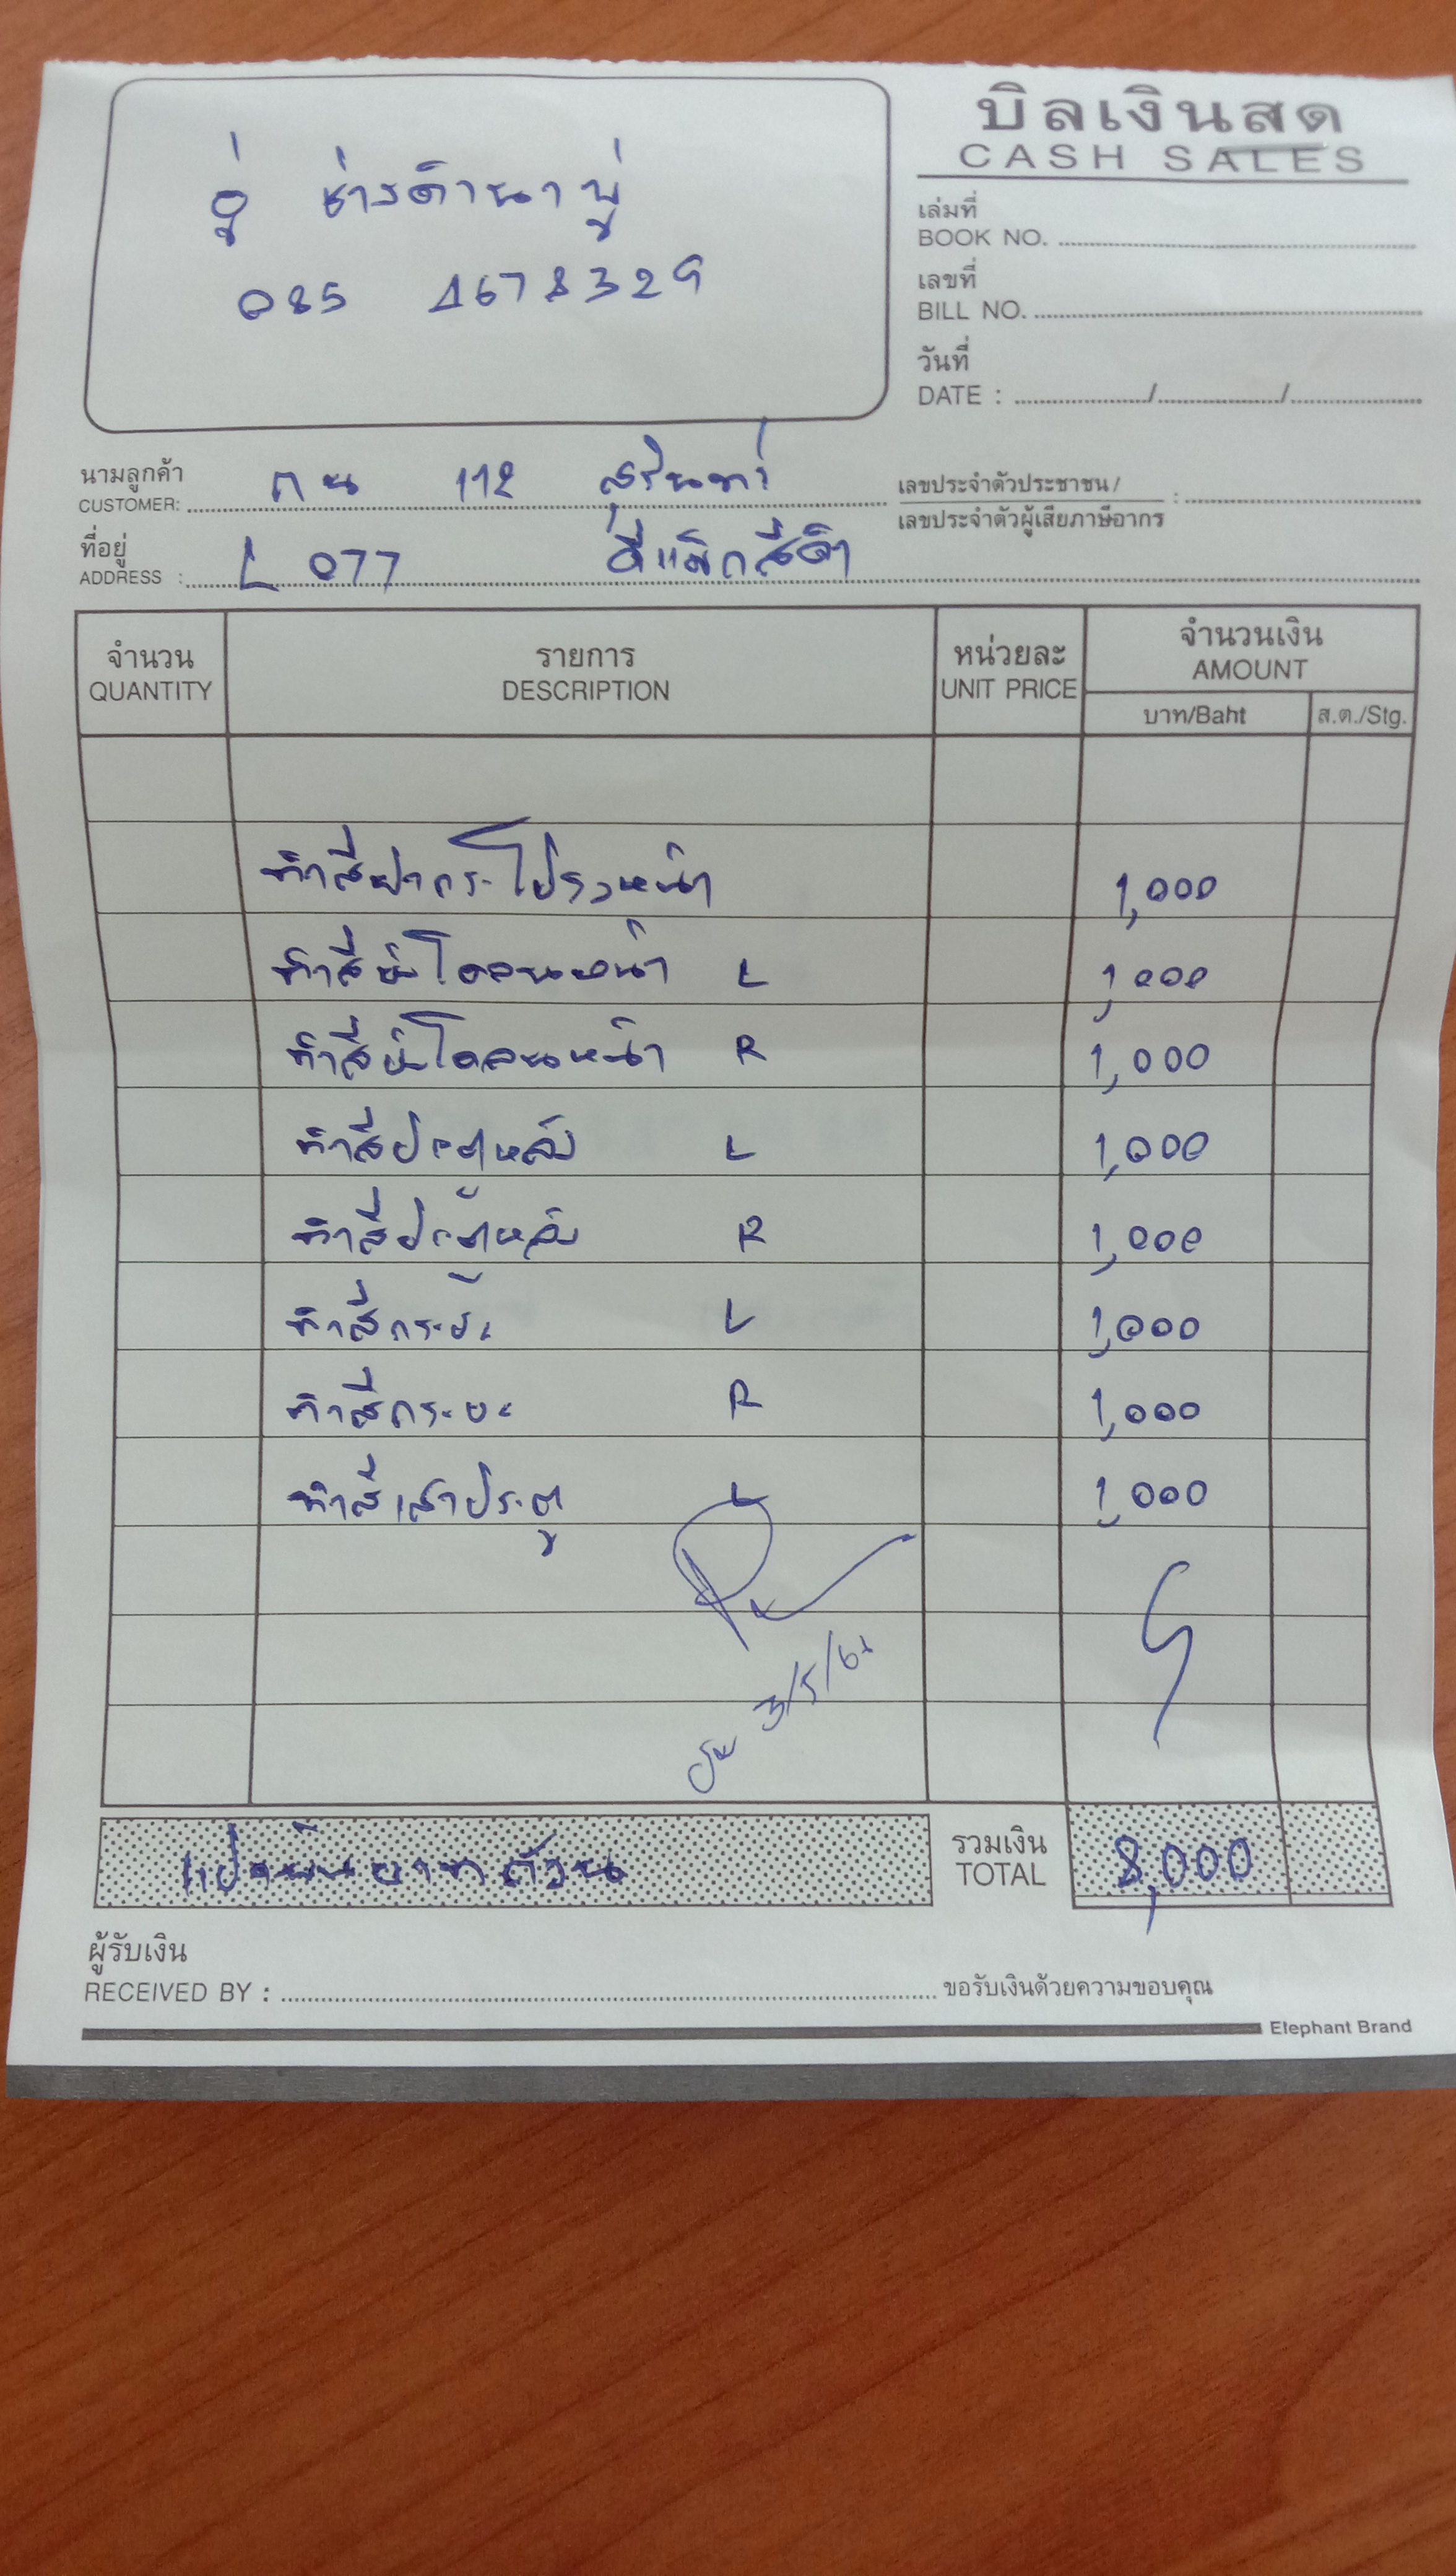 บิลเงินสด
CASH SALES
อู่ ช่างดำนาพู่
085 4678329
เล่มที่
BOOK NO.
เลขที่
BILL NO.
วันที่
DATE : / /
นามลูกค้า
CUSTOMER: กน 112 สุรินทร์
เลขประจำตัวประชาชน /
เลขประจำตัวผู้เสียภาษีอากร :
ที่อยู่
ADDRESS : L 077 ดีแม็กสีดำ
จำนวน รายการ หน่วยละ จำนวนเงิน
QUANTITY DESCRIPTION UNIT PRICE AMOUNT
บาท/Baht ส.ต./Stg.
ทำสีฝากระโปรงหน้า 1,000
ทำสีบังโคลนหน้า L 1,000
ทำสีบังโคลนหน้า R 1,000
ทำสีประตูหลัง L 1,000
ทำสีประตูหลัง R 1,000
ทำสีกระบะ L 1,000
ทำสีกระบะ R 1,000
ทำสีเสาประตู L 1,000
3/5/61
แปดพันบาทถ้วน
รวมเงิน
TOTAL 8,000
ผู้รับเงิน
RECEIVED BY : ขอรับเงินด้วยความขอบคุณ
Elephant Brand